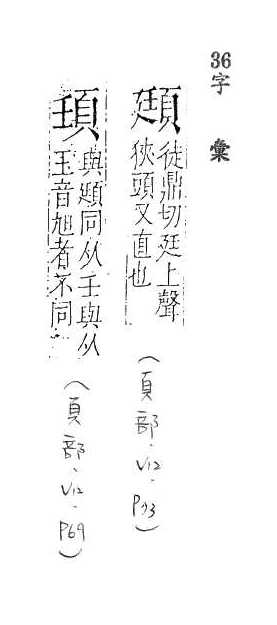 36字 彙
頲 徒鼎切廷上聲
狹頭又直也
(頁部、V12、P73)
𩑒 與頲同从壬與从
玉音旭者不同
(頁部、V12、P69)